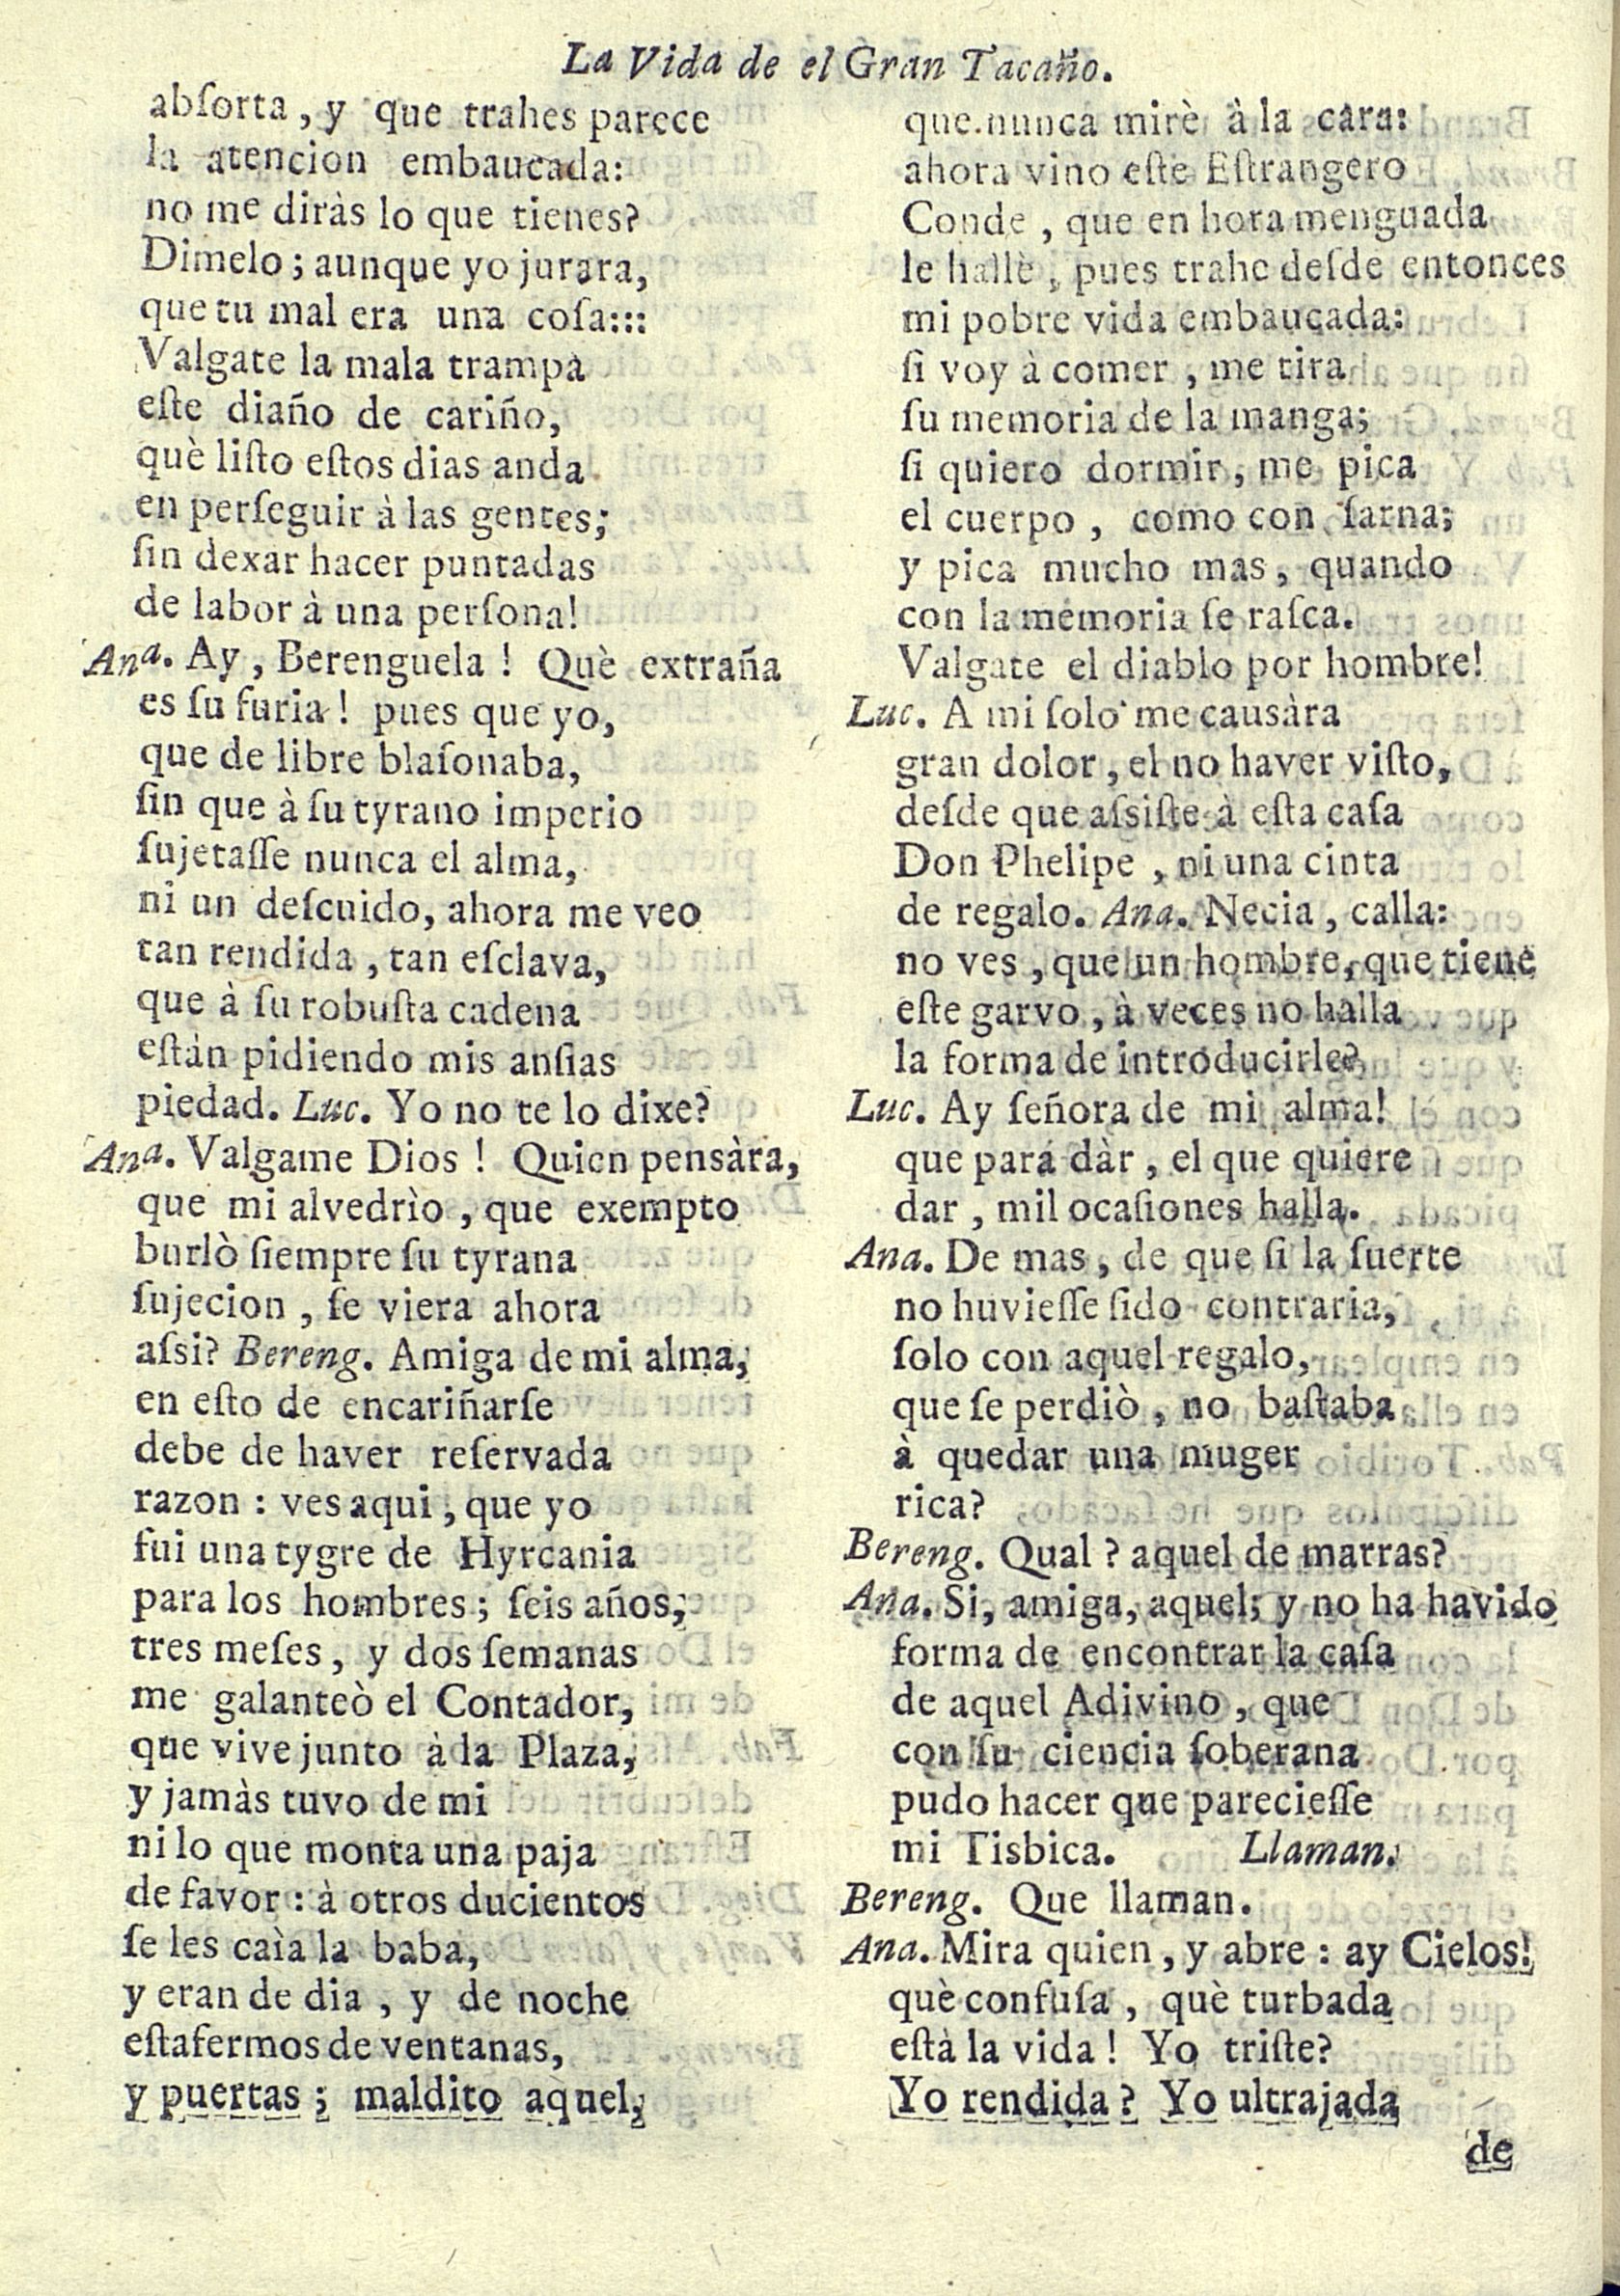 La Vida de el Gran Tacaño.
abſorta, y que trahes parece
la atencion embaucada:
no me diràs lo que tienes?
Dimelo; aunque yo jurara,
que tu mal era una coſa:::
Valgate la mala trampa
eſte diaño de cariño,
què liſto eſtos dias anda
en perſeguir à las gentes;
ſin dexar hacer puntadas
de labor à una perſona!
Ana. Ay, Berenguela! Què extraña
es ſu furia! pues que yo,
que de libre blaſonaba,
ſin que à ſu tyrano imperio
ſujetaſſe nunca el alma,
ni un deſcuido, ahora me veo
tan rendida, tan eſclava,
que à ſu robuſta cadena
eſtán pidiendo mis anſias
piedad. Luc. Yo no te lo dixe?
Ana. Valgame Dios! Quien pensàra,
que mi alvedrìo, que exempto
burlò ſiempre ſu tyrana
ſujecion, ſe viera ahora
aſsi? Bereng. Amiga de mi alma,
en eſto de encariñarſe
debe de haver reſervada
razon: ves aqui, que yo
fui una tygre de Hyrcania
para los hombres; ſeis años,
tres meſes, y dos ſemanas
me galanteò el Contador,
que vive junto à la Plaza,
y jamàs tuvo de mi
ni lo que monta una paja
de favor: à otros ducientos
ſe les caìa la baba,
y eran de dia, y de noche
eſtafermos de ventanas,
y puertas; maldito aquel,
que nunca mirè à la cara:
ahora vino eſte Eſtrangero
Conde, que en hora menguada
le hallè, pues trahe deſde entonces
mi pobre vida embaucada:
ſi voy à comer, me tira
ſu memoria de la manga;
ſi quiero dormir, me pica
el cuerpo, como con ſarna;
y pica mucho mas, quando
con la memoria ſe raſca.
Valgate el diablo por hombre!
Luc. A mi ſolo me causàra
gran dolor, el no haver viſto,
deſde que aſsiſte à eſta caſa
Don Phelipe, ni una cinta
de regalo. Ana. Necia, calla:
no ves, que un hombre, que tiene
eſte garvo, à veces no halla
la forma de introducirle?
Luc. Ay ſeñora de mi alma!
que para dàr, el que quiere
dar, mil ocaſiones halla.
Ana. De mas, de que ſi la ſuerte
no huvieſſe ſido contraria,
ſolo con aquel regalo,
que ſe perdiò, no baſtaba
à quedar una muger
rica?
Bereng. Qual? aquel de marras?
Ana. Si, amiga, aquel; y no ha havido
forma de encontrar la caſa
de aquel Adivino, que
con ſu ciencia ſoberana
pudo hacer que parecieſſe
mi Tisbica. Llaman.
Bereng. Que llaman.
Ana. Mira quien, y abre: ay Cielos!
què confuſa, què turbada
eſtà la vida! Yo triſte?
Yo rendida? Yo ultrajada
de